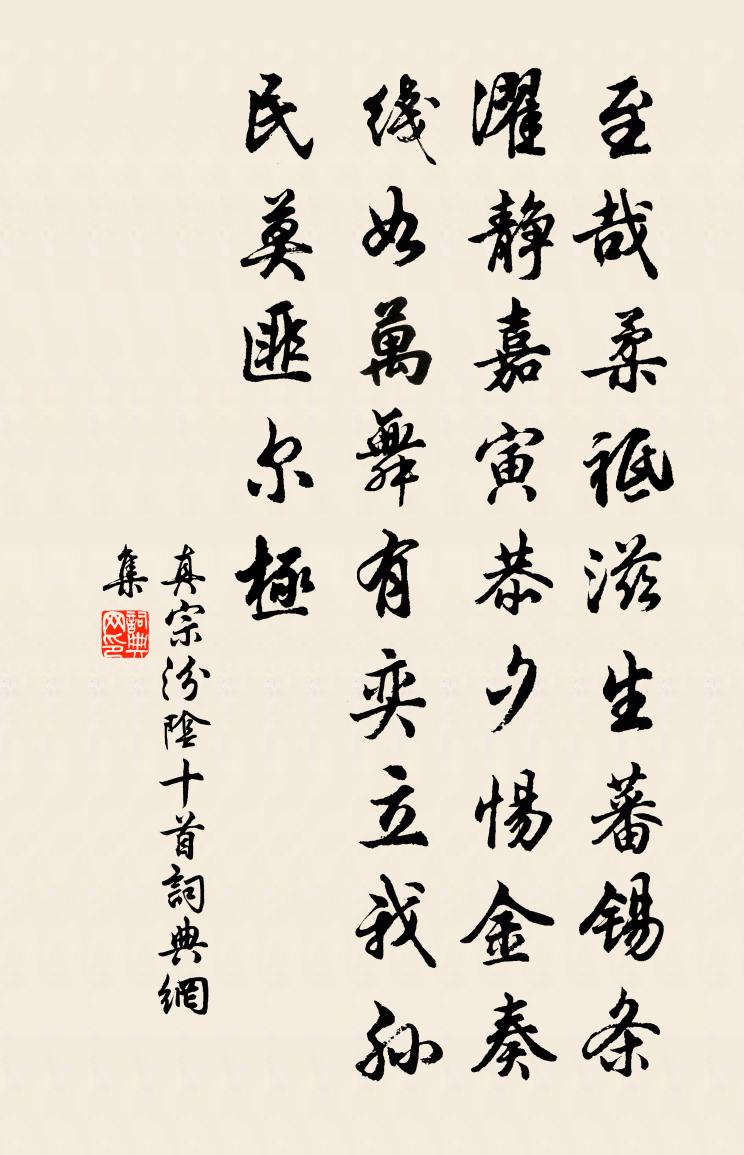 至哉柔祗滋生蕃锡条
濯静嘉寅恭夕惕金奏
綫如萬舞有奕立我孙
民莫匪尔極
真宗汾陰十首詞典網
集
詞典
网印